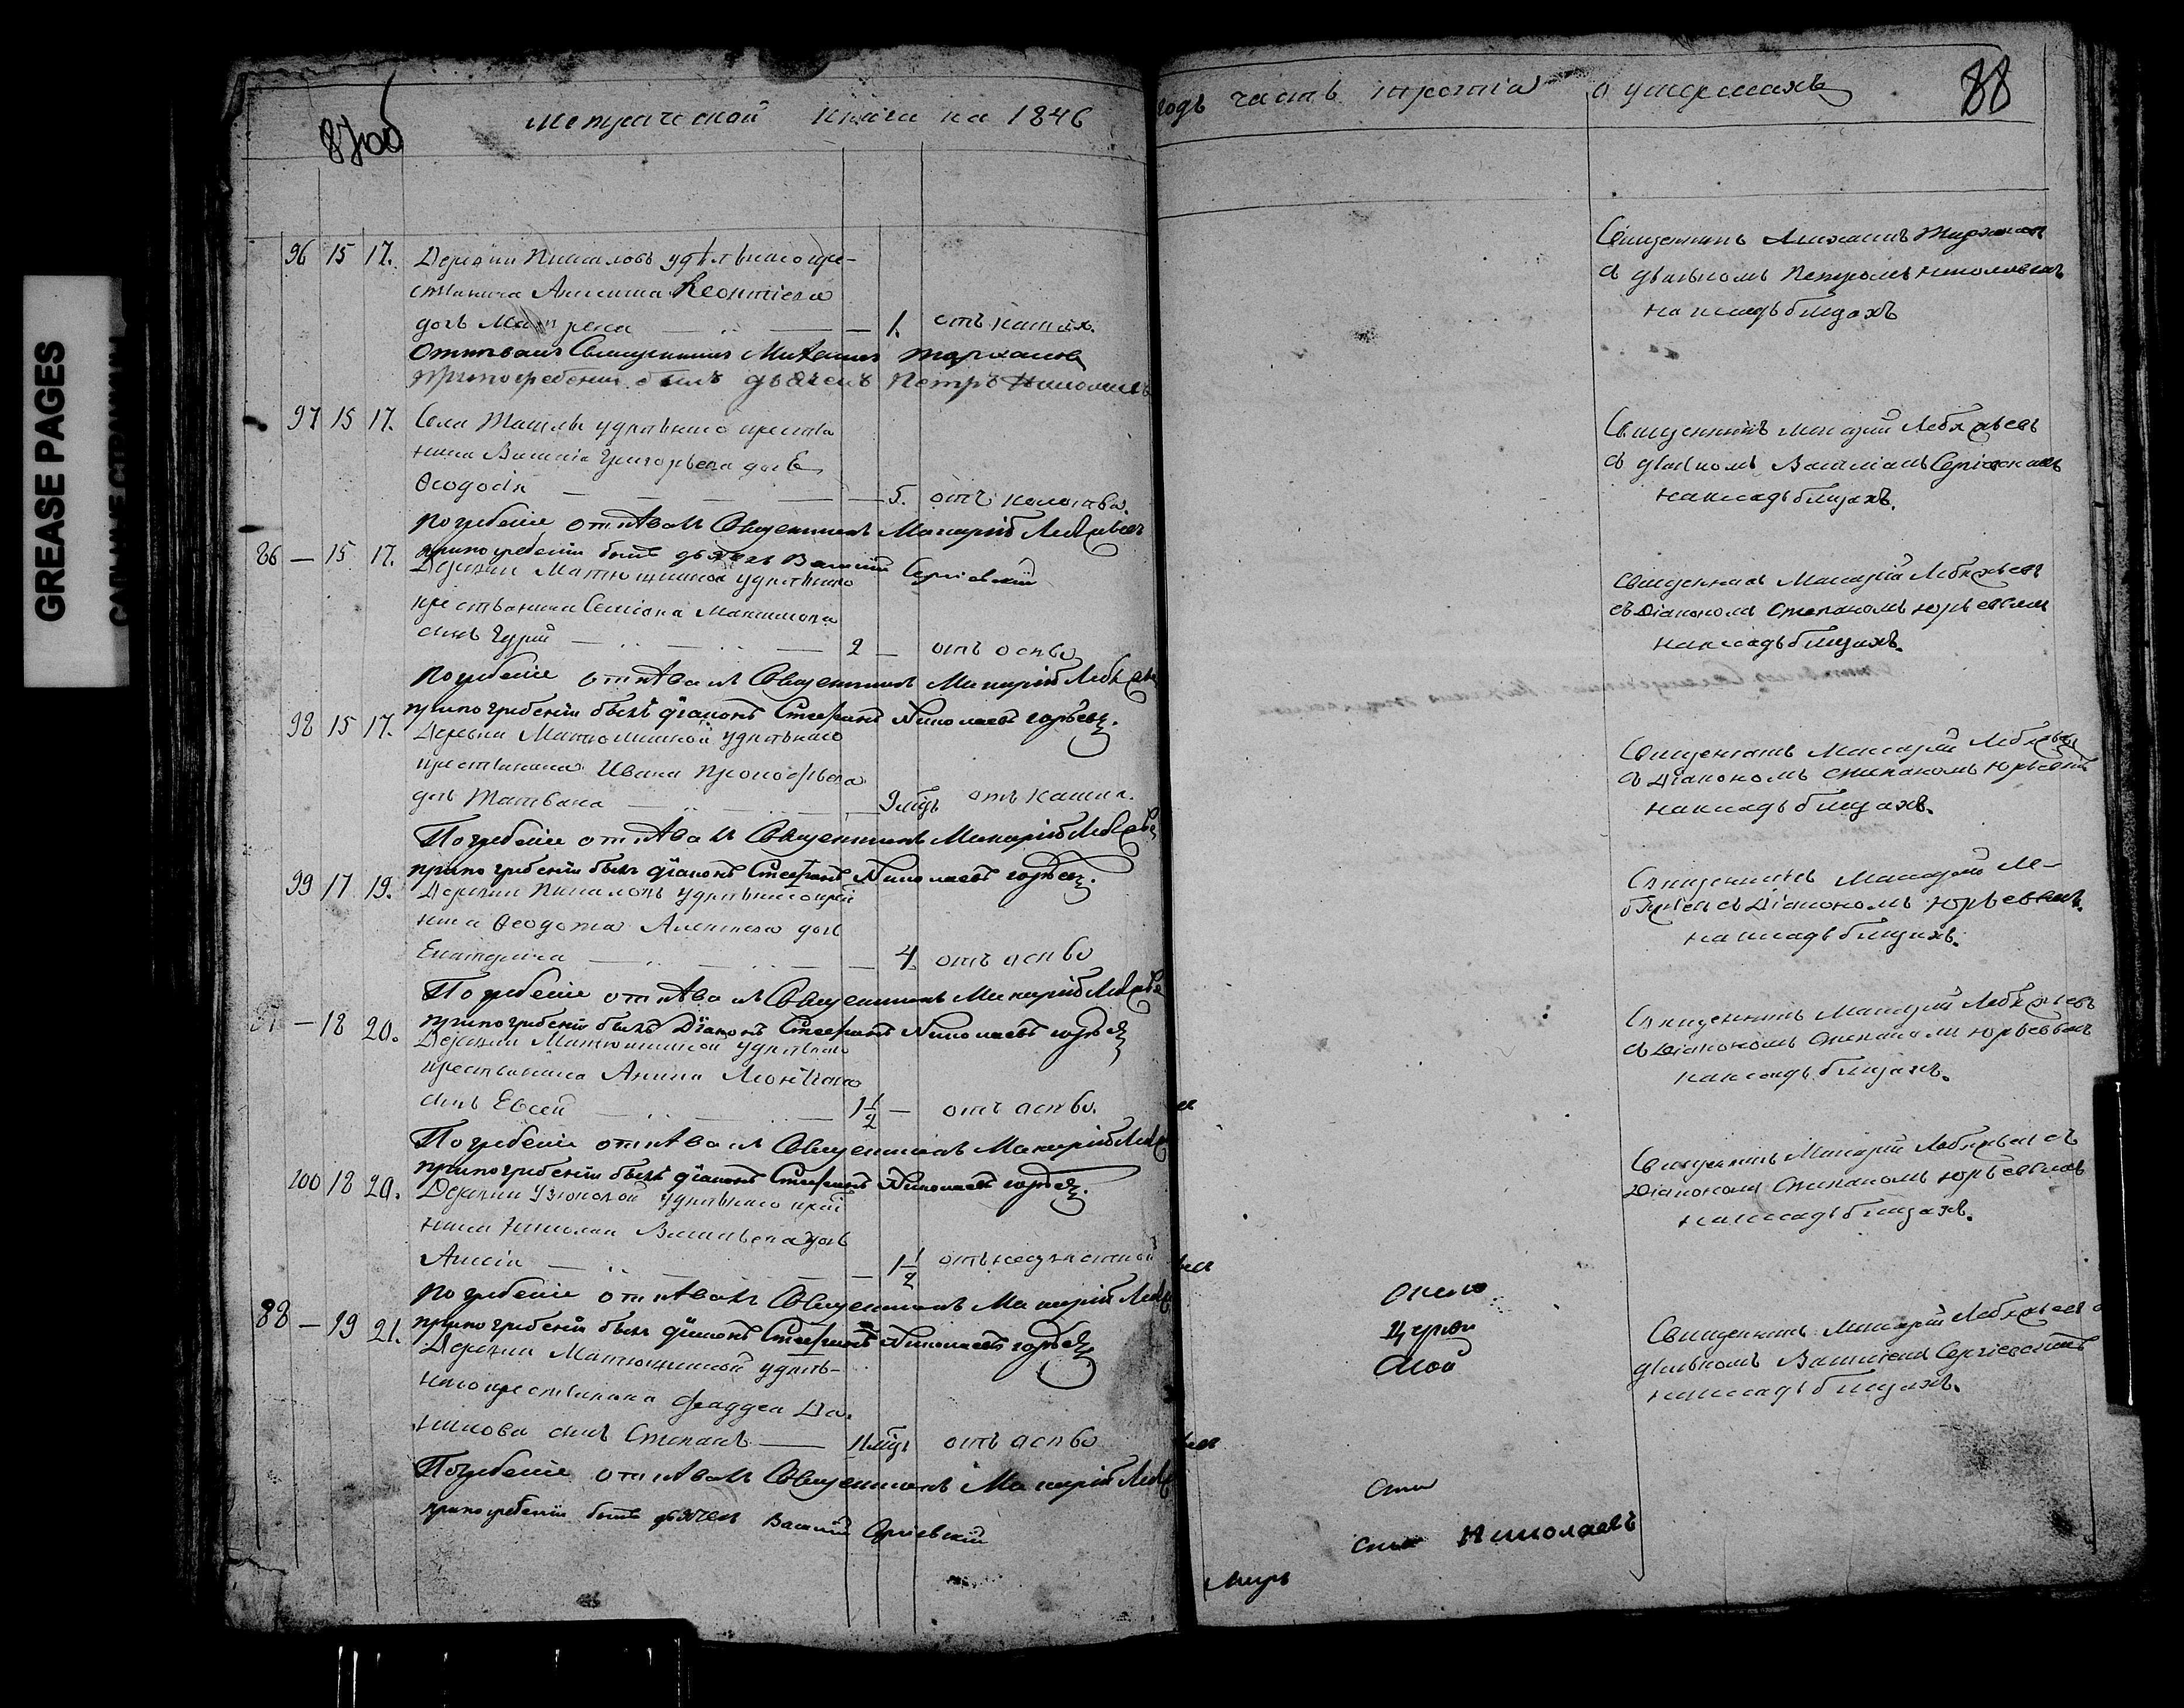 GREASE PAGES
87об
Метрической книги на 1846
годъ часть третiя о умершихъ
88
96 15 17. Деревни удѣльнаго кре-
стьянина Леонтiева
дочь Матрена — 1. отъ кашля.
Отпѣвалъ Священникъ Михаилъ
при погребенiи былъ дьячекъ Петръ Николаевъ
97 15 17. Села удѣльнаго крестья
нина Василiя Григорьева дочь
Ѳеодосiя — 5. отъ
Погребенiе отпѣвалъ Священникъ Макарiй Лебяжьевъ
при погребенiи былъ дьячекъ Василiй Сергiевскiй
86 — 15 17. Деревни Матюшкиной удѣльнаго
крестьянина Семiона Максимова
сынъ Гурiй — 2 — отъ оспы
Погребенiе отпѣвалъ Священникъ Макарiй
при погребенiи былъ дiаконъ Стефанъ Николаевъ Юрьевъ.
98 15 17. Деревни Матюшкиной удѣльнаго
крестьянина Ивана Прокофьева
дочь Татьяна — 9 мцъ отъ кашля.
Погребенiе отпѣвалъ Священникъ Макарiй
при погребенiи былъ дiаконъ Стефанъ Николаевъ Юрьевъ.
99 17 19. Деревни удѣльнаго крестья
нина Ѳеодота Алексеева дочь
Екатерина — 4. отъ оспы
Погребенiе отпѣвалъ Священникъ Макарiй
при погребенiи былъ Дiаконъ Стефанъ Николаевъ Юрьевъ
87 — 18 20. Деревни Матюшкиной удѣльнаго
крестьянина
сынъ Евсей — 1 1/2 — отъ оспы.
Погребенiе отпѣвалъ Священникъ Макарiй
при погребенiи былъ дiаконъ Стефанъ Николаевъ Юрьевъ.
100 18 20. Деревни Узюковой удѣльнаго крестья
нина Николая Васильева дочь
— 1 1/2 отъ
Погребенiе отпѣвалъ Священникъ Макарiй
при погребенiи былъ дiаконъ Стефанъ Николаевъ Юрьевъ
88 — 19 21. Деревни Матюшкиной удѣль-
наго крестьянина Фаддея Да-
нилова сынъ Степанъ — 11 мцъ отъ оспы
Погребенiе отпѣвалъ Священникъ Макарiй
при погребенiи былъ дьячекъ Василiй Сергiевскiй
Священникъ Михаилъ
съ дьячкомъ Петромъ Николаевымъ
на кладбищахъ
Священникъ Макарiй Лебяжьевъ
съ дьячкомъ Василiемъ Сергiевскимъ
на кладбищахъ.
Священникъ Макарiй Лебяжьевъ
съ Дiакономъ Степаномъ Юрьевымъ
на кладбищахъ.
Священникъ Макарiй Лебяжьевъ
съ Дiакономъ Степаномъ Юрьевымъ
на кладбищахъ.
Священникъ Макарiй Ле-
бяжьевъ съ Дiакономъ Юрьевымъ.
на кладбищахъ.
Священникъ Макарiй Лебяжьевъ
съ Дiакономъ Степаномъ Юрьевымъ
на кладбищахъ.
Священникъ Макарiй Лебяжьевъ съ
Дiакономъ Степаномъ Юрьевымъ
на кладбищахъ.
Священникъ Макарiй Лебяжьевъ съ
дьячкомъ Василiемъ Сергiевскимъ
на кладбищахъ.
Николаевъ